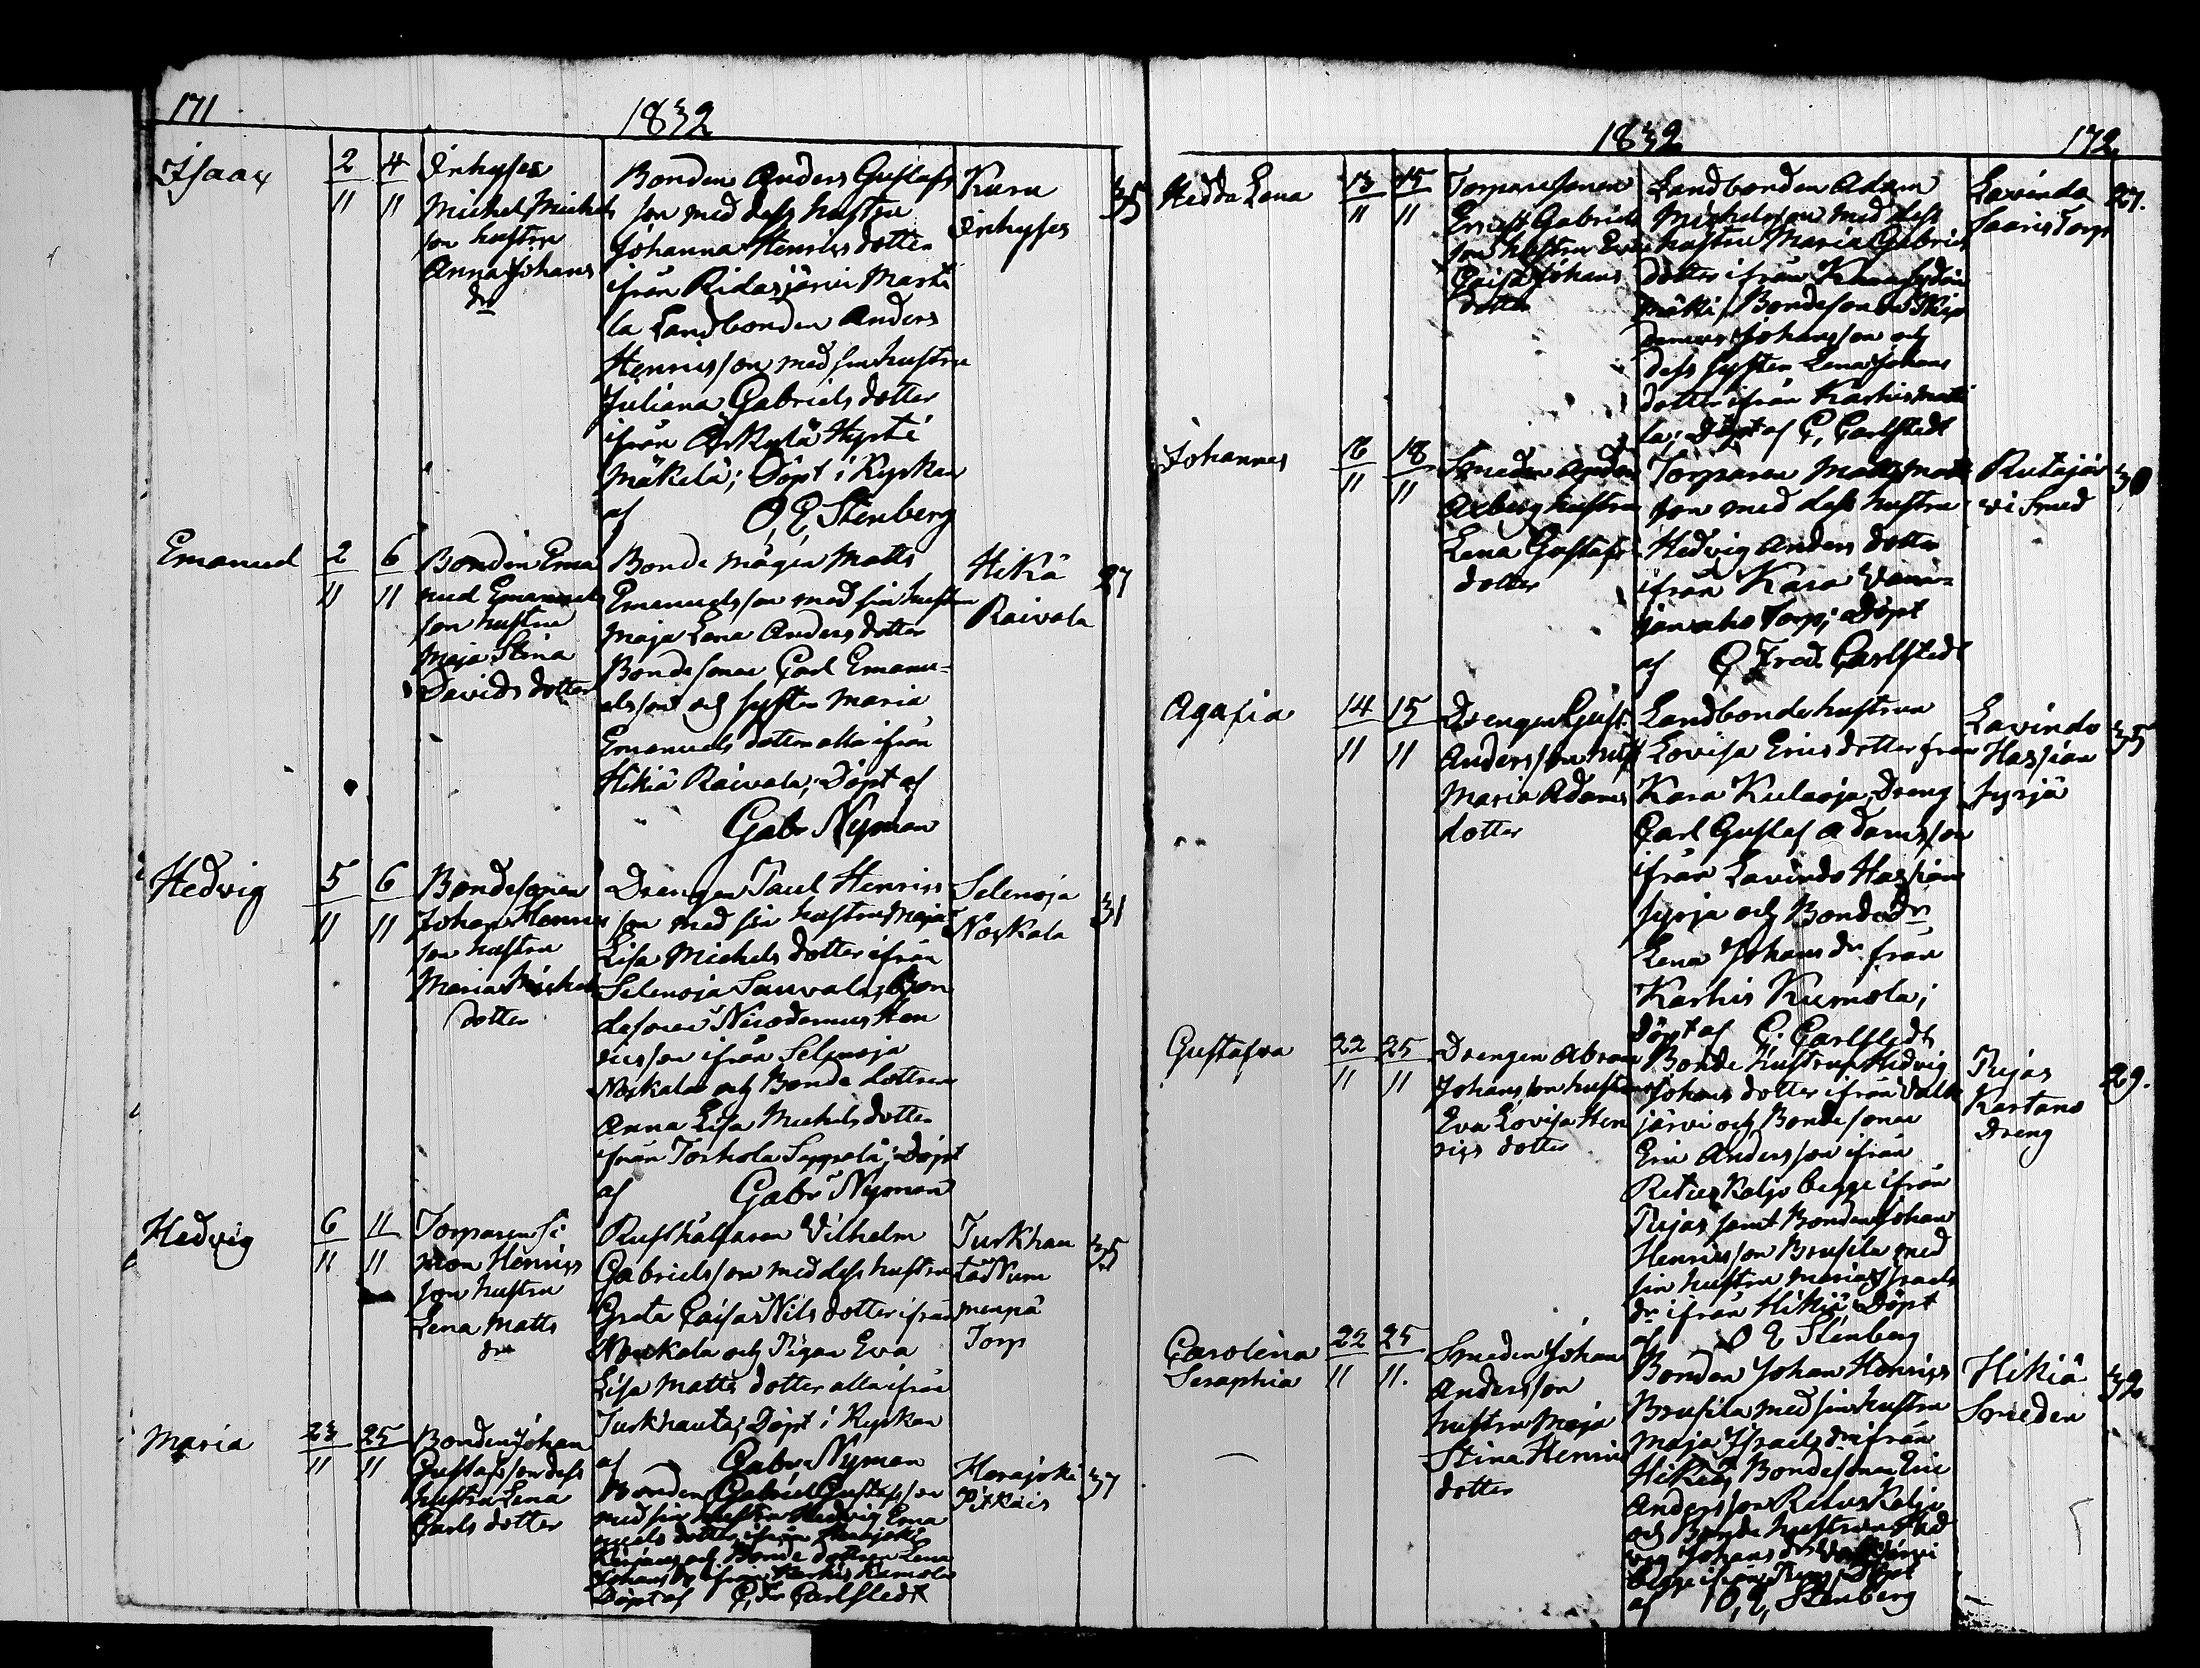 171
1832
Isaac
2 4
11 11
Inhyses
Michel Michels
son hustru
Anna Johans
dr
Bonden Anders Gustafs
son med dess hustru
Johanna Henrics dotter
ifrån Ridasjärvi Marti
la Landbonden Anders
Henricsson med sin hustru
Juliana Gabriels dotter
ifrån Erkylä Hyrti
Mäkelä; Döpt i Kyrkan
af O, E Stenberg
Kuru
Inhyses
35
Emanuel
2 6
11 11
Bonden Ema
nuel Emanuels
son hustru
Maja Stina
Davids dotter
Bonde mågen Matts
Emanuelsson med sin hustru
Maja Lena Anders dotter
Bondesonen Carl Emanu-
elsson och syster Maria
Emanuels dotter alla ifrån
Hikiä Raivala; Döpt af
Gabr Nyman
Hikiä
Raivala
27
Hedvig
5 6
11 11
Bondesonen
Johan Henrics
son hustru
Maria Michels
dotter
Drengen Paul Henrics
son med sin hustru Maja
Lisa Michels dotter ifrån
Selenoja Sauvala, Bon
desonen Nicodemus Hen
ricsson ifrån Selenoja
Noskala och Bonde dottren
Anna Lisa Michels dotter
ifrån Torhola Seppelä; Döpt
af Gabr Nyman
Selenoja
Noskala
31
Hedvig
6 11
11 11
Torparen Si
mon Henrics
son hustru
Lena Matts
dr
Rusthållaren Vilhelm
Gabrielsson med dess hustru
Greta Caisa Nils dotter ifrån
Noukala och Pigan Eva
Lisa Matts dotter alla ifrån
Turkhauta; Döpt i Kyrkan
af Gabr Nyman
Turkhau
ta Num
menpä
Torp
35
Maria
23 25
11 11
Bonden Johan
Gustafsson dess
hustru Lena
Carls dotter
Bonden Gabriel Gustafsson
med sin hustru Hedvig Ema
nuels dotter ifrån Herajoki
och Bonde dottren Lena
Johans dr ifrån Karhis Kumola
Döpt af C, Fr Carlstedt
Herajoki
Pitkäis
37
1832
172
Hedda Lena
13 15
11 11
Torparesonen
Ernst Gabriels
son hustru Eva
Caisa Johans
dotter
Landbonden Adam
Michelsson med dess
hustru Maria Gabriels
dotter ifrån
mäki, Bondesonen
Johansson och
dess syster Lena Johans
dotter ifrån Karhis Matti
la; Döpt af C, Carlstedt
Lavinda
Saaris Torp
27.
Johannes
16 18
11 11
Smeden Anders
Axberg hustru
Lena Gustafs
dotter
Torparen Matts Matts
son med dess hustru
Hedvig Anders dotter
ifrån Kara Vani-
jänaho Torp; Döpt
af C Fred. Carlstedt
Rutajär
vi Smed
30
Agafia
14 15
11 11
Drengen Gust.
Andersson hust
Maria Adams
dotter
Landbonde hustrun
Lovisa Erics dotter från
Kara Kulaoja, Dreng
Carl Gustaf Adamsson
ifrån Lavindo Hassian
Syrjä och Bonde dr
Lena Johans dr från
Karhis Kumola;
Döpt af C, Carlstedt
Lavindo
Hassian
Syrjä
35
Gustafva
22 25
11 11
Drengen Abram
Johansson hustru
Eva Lovisa Hen
rics dotter
Bonde hustrun Hedvig
Johans dotter ifrån Valk
järvi och Bondesonen
Eric Andersson ifrån
Retus Kaljo begge ifrån
Rejas samt Bonden Johan
Henricsson Brusila med
sin hustru Maria Israels
dr ifrån Hikiä Döpt
af O E Stenberg
Rejas
Kartano
Dreng
29.
Carolina
Seraphia
22 25
11 11.
Smeden Johan
Andersson
hustru Maja
Stina Henrics
dotter
Bonden Johan Henrics
Brusila med sin hustru
Maja Israels dr ifrån
Hikiä, Bondesonen Eric
Andersson Retus Kaljo
och Bonde hustrun Hed
vig Johans dr Valkjärvi
begge ifrån Rejas, Döpt
af O, E, Stenberg
Hikiä
Smeden
32